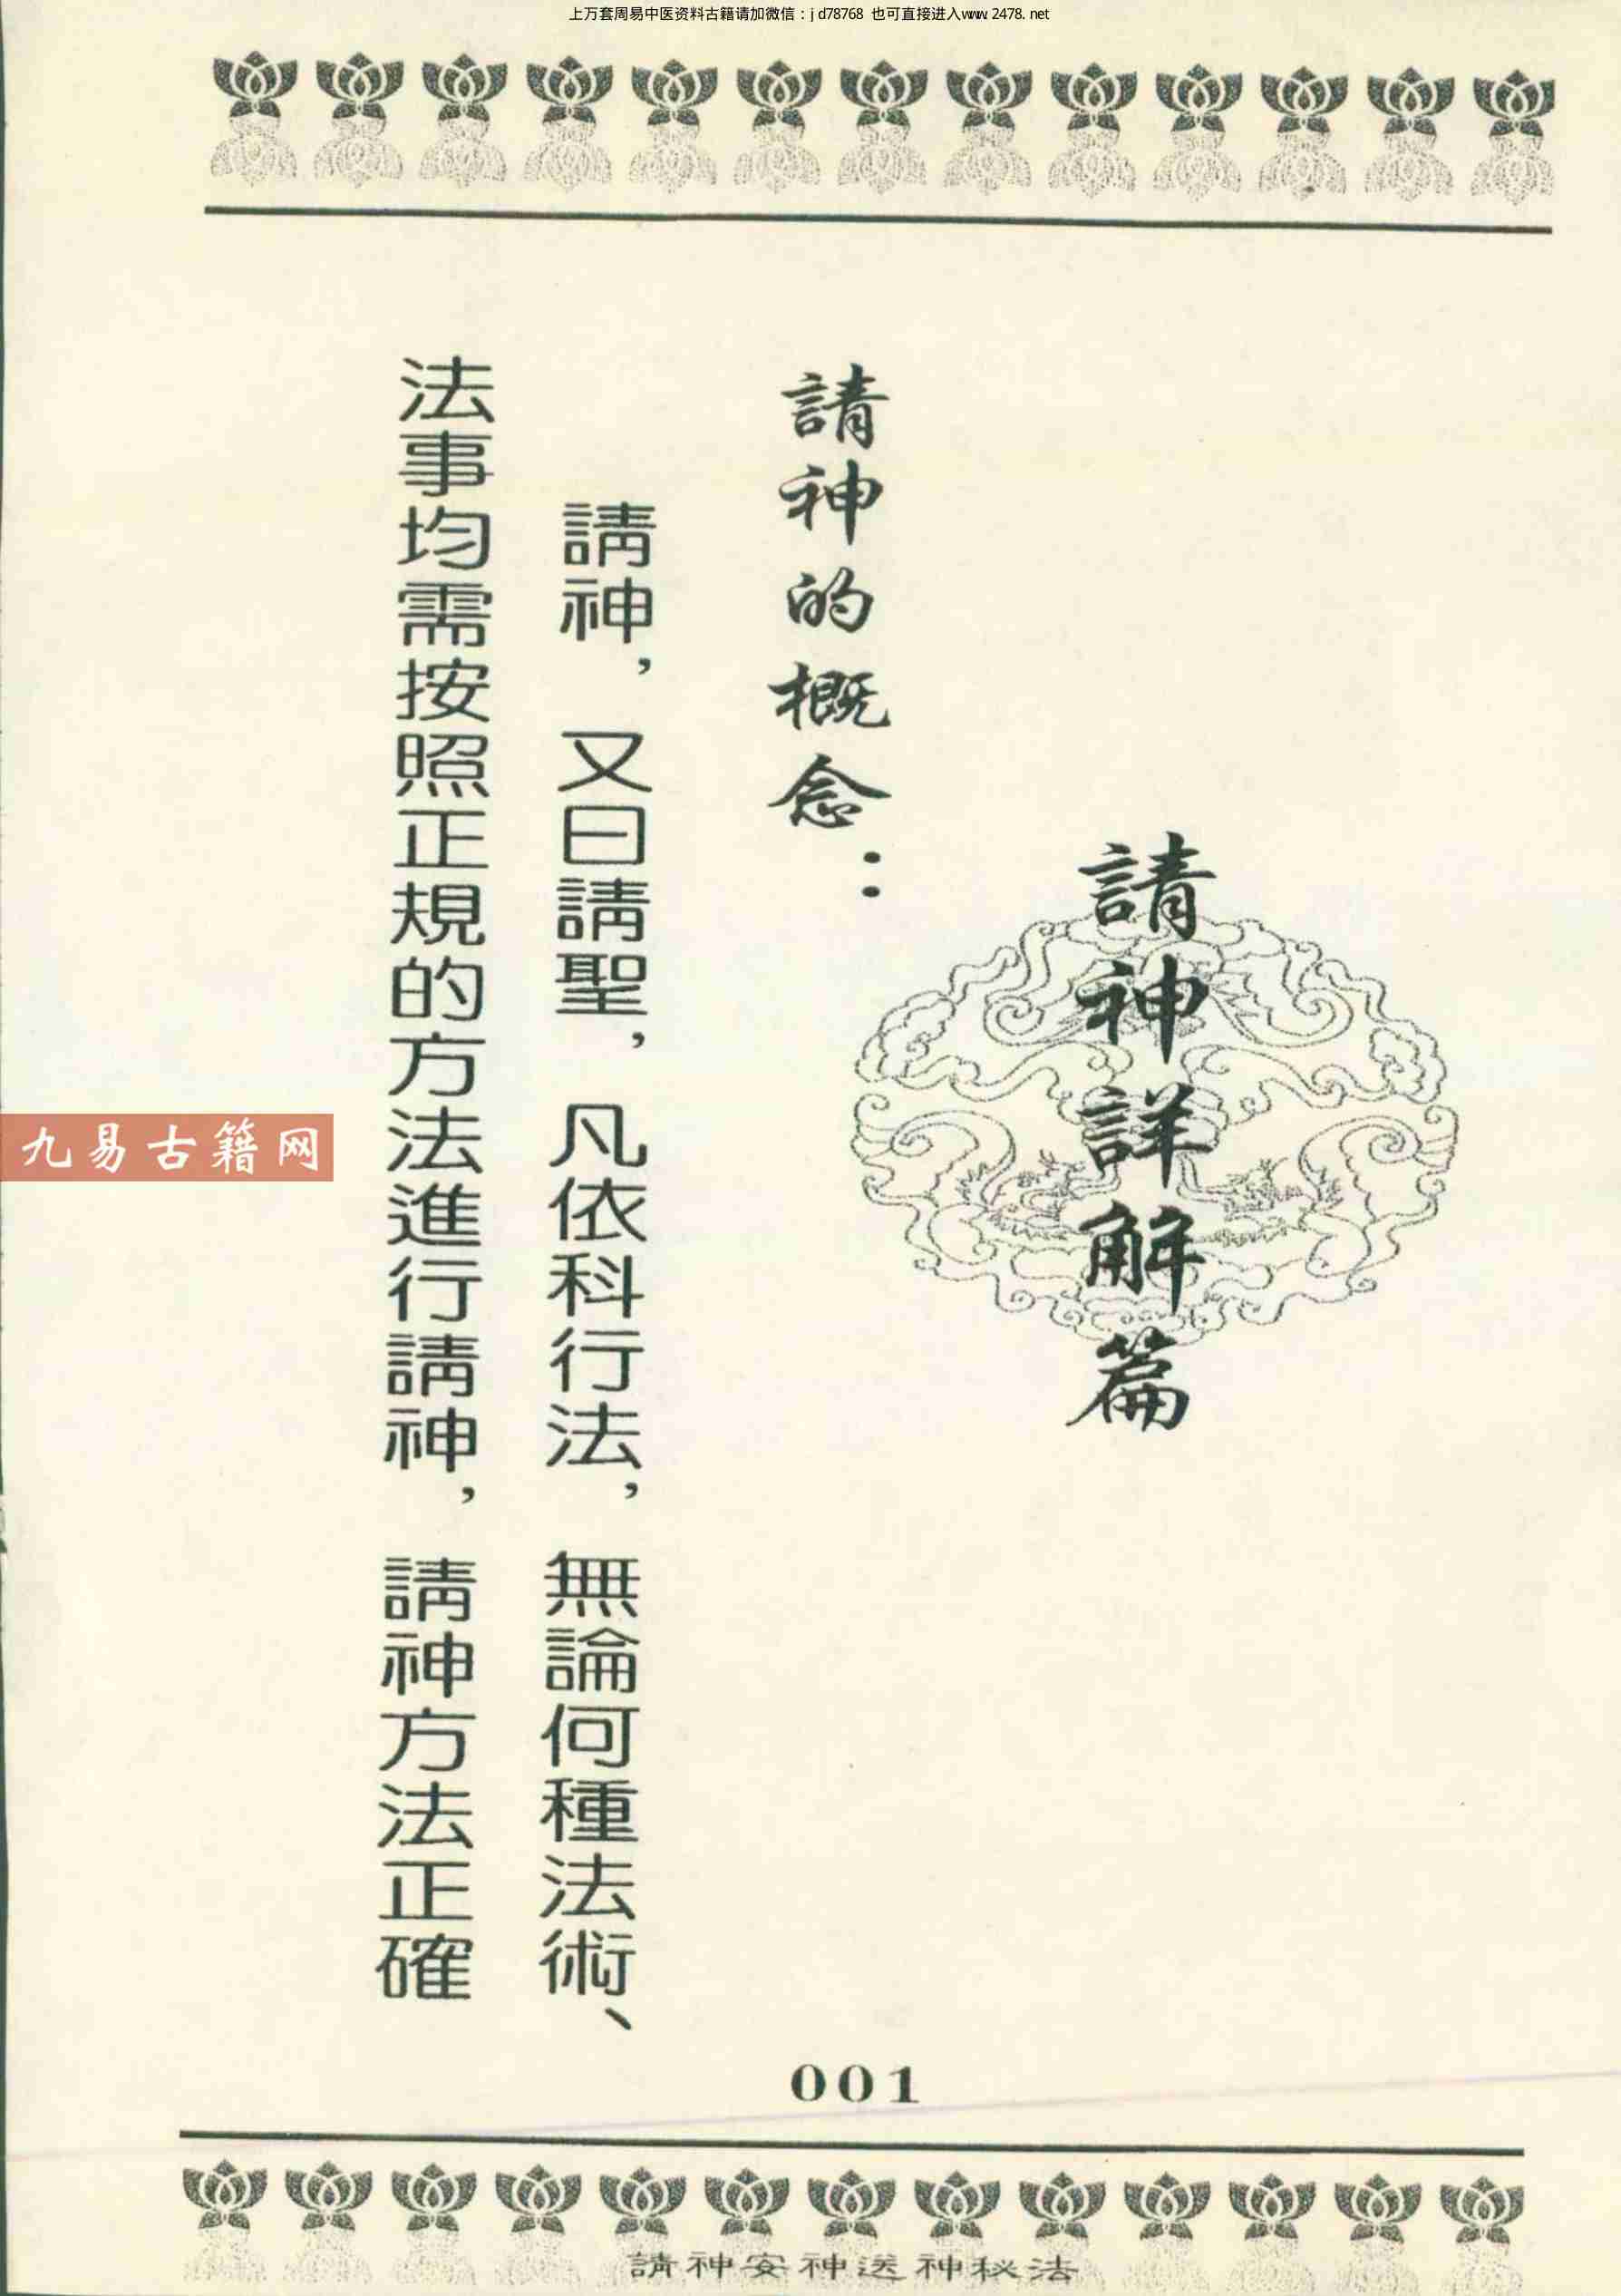 上万套周易中医资料古籍请加微信：jd78768 也可直接进入www.2478.net
請神詳解篇
請神的概念：
請神，又曰請聖，凡依科行法，無論何種法術、
法事均需按照正規的方法進行請神，請神方法正確
九易古籍网
001
請神安神送神秘法